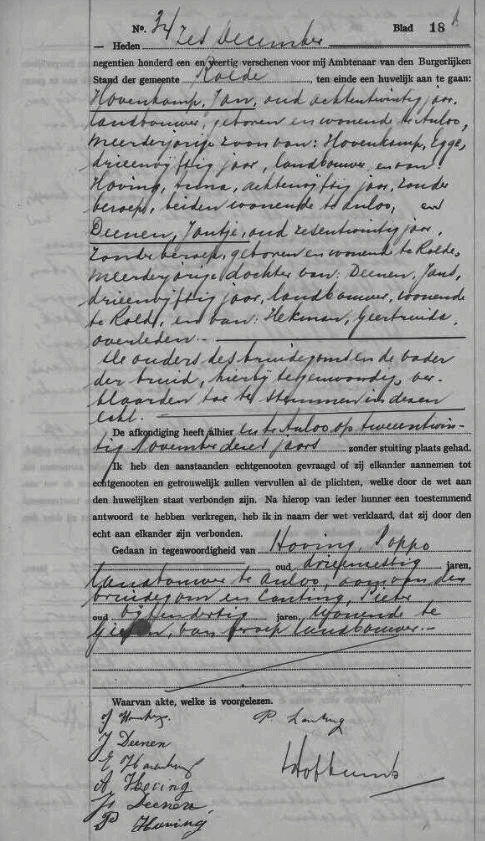 No. 34 Blad 18
Heden zes December
negentien honderd een en veertig verschenen voor mij Ambtenaar van den Burgerlijken
Stand der gemeente Rolde, ten einde een huwelijk aan te gaan:
Hovenkamp, Jan, oud achtentwintig jaar,
landbouwer, geboren en wonende te Anloo,
meerderjarige zoon van: Hovenkamp, Egge,
drieenvijftig jaar, landbouwer, en van
Hoving, achtenvijftig jaar, zonder
beroep, beiden wonende te Anloo, en
Deenen, Jantje, oud zesentwintig jaar,
zonder beroep, geboren en wonende te Rolde,
meerderjarige dochter van: Deenen, Jans,
drieenvijftig jaar, landbouwer, wonende
te Rolde, en van: Hekman, Geertruida,
overleden.
De ouders des bruidegoms en de vader
der bruid, hierbij tegenwoordig, ver-
klaarden toe te stemmen in dezen
echt.
De afkondiging heeft alhier en te Anloo op tweeentwin-
tig November dezes jaars zonder stuiting plaats gehad.
Ik heb den aanstaanden echtgenooten gevraagd of zij elkander aannemen tot
echtgenooten en getrouwelijk zullen vervullen al de plichten, welke door de wet aan
den huwelijken staat verbonden zijn. Na hierop van ieder hunner een toestemmend
antwoord te hebben verkregen, heb ik in naam der wet verklaard, dat zij door den
echt aan elkander zijn verbonden.
Gedaan in tegenwoordigheid van Hoving, Poppo
oud jaren,
landbouwer te Anloo, oom van den
bruidegom en Lanting, Pieter
oud jaren, wonende te
van beroep landbouwer.
Waarvan akte, welke is voorgelezen.
P. Lanting
J Deenen
E Hovenkamp
A Hoving
Js Deenen
P Hoving